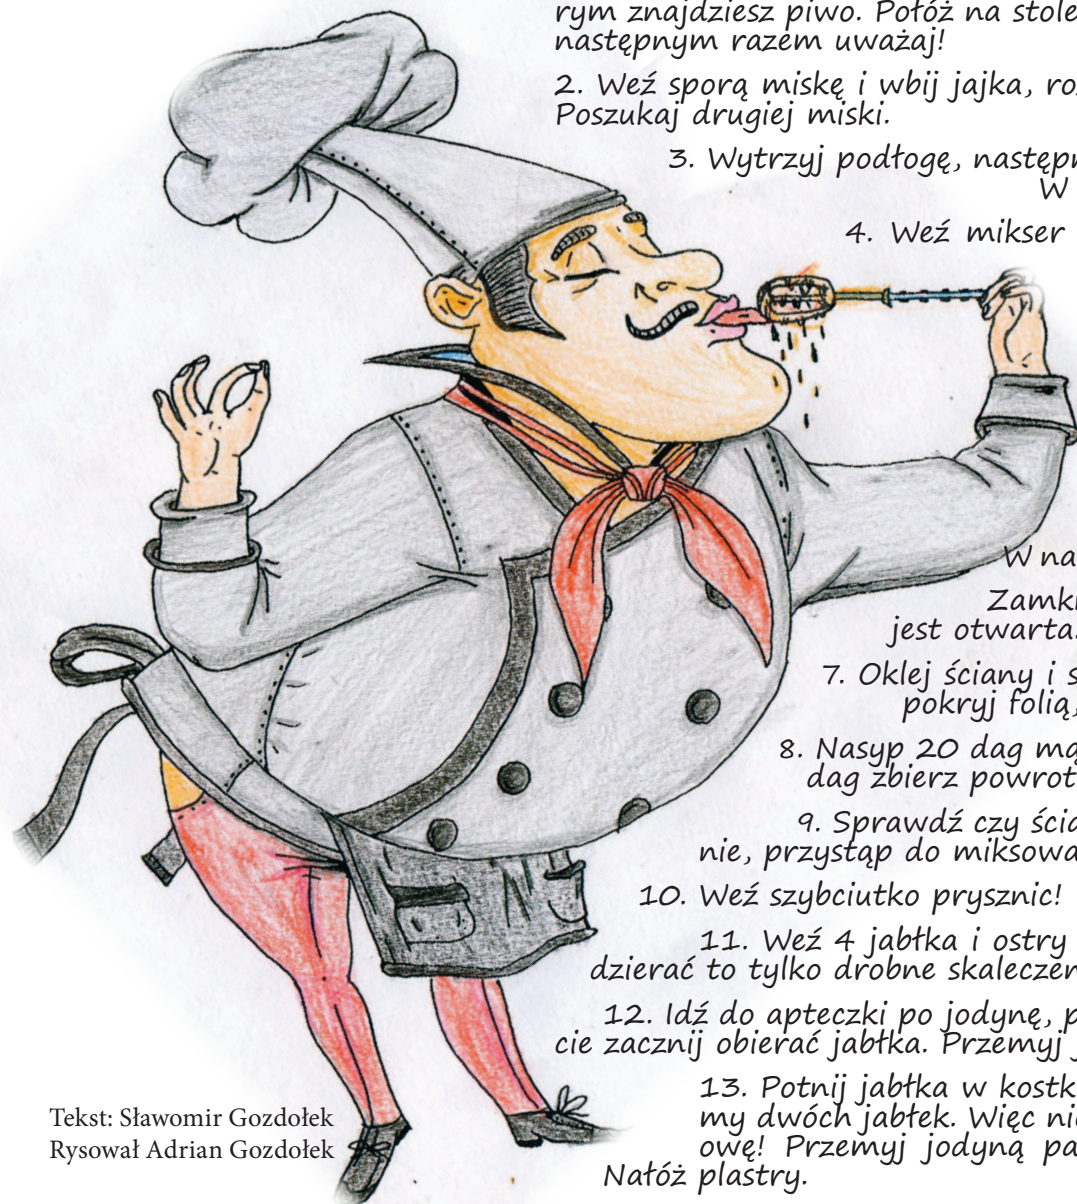 rym znajdziesz piwo. Połóż na stole
następnym razem uważaj!
2. Weź sporą miskę i wbij jajka,
Poszukaj drugiej miski.
3. Wytrzyj podłogę,
W
4. Weź mikser
W
Zamk
jest otwarta.
7. Oklej ściany i
pokryj folią,
8. Nasyp 20 dag
dag zbierz
9. Sprawdź czy
nie, przystąp do
10. Weź szybciutko prysznic!
11. Weź 4 jabłka i ostry
dzierać to tylko drobne
12. Idź do apteczki po jodynę,
cie zacznij obierać jabłka. Przemyj
13. Potnij jabłka w
my dwóch jabłek. Więc
owę! Przemyj jodyną
Nałóż plastry.
Tekst: Sławomir Gozdołek
Rysował Adrian Gozdołek